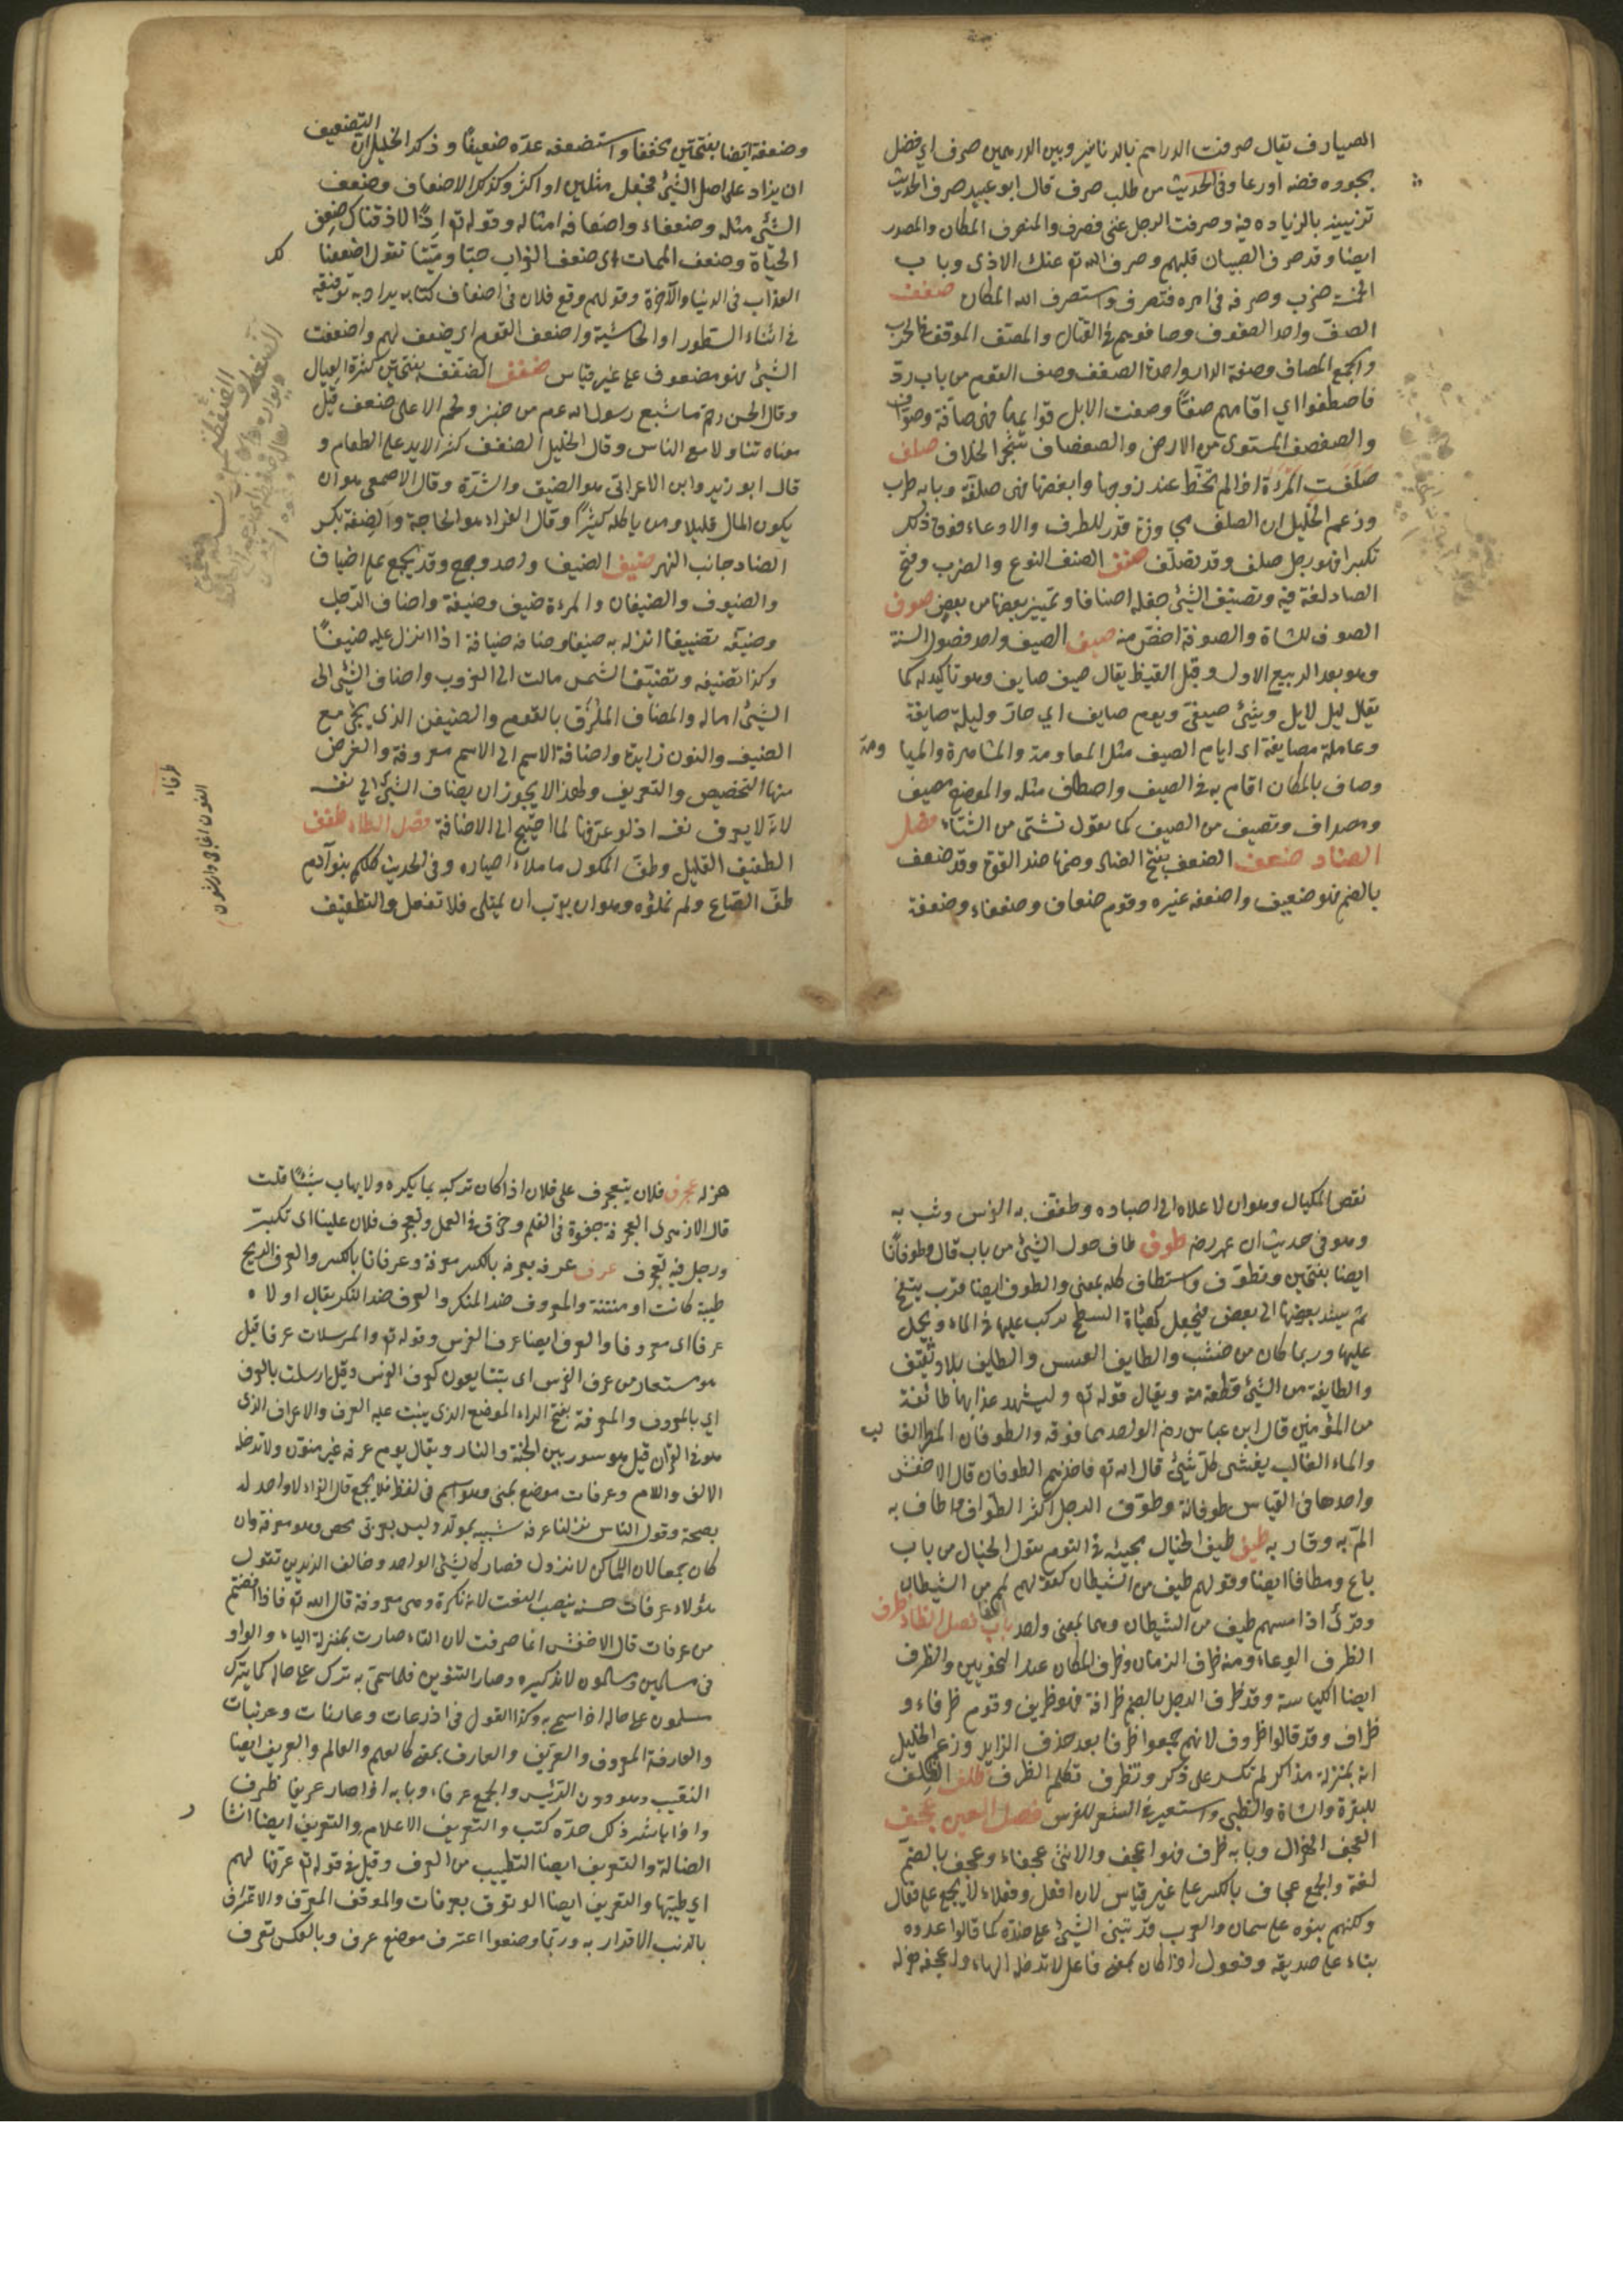 الصيارف يقال صرفت الدراهم بالدنانير وبين الدرهمين صرف اي فضل
بجوده فضه او رعا وفى الحديث من طلب صرف قال ابو عبيد صرف الحديث
تزيينه بالزياده فيه وصرفت الرجل عنى فصرف والمنصرف المكان والمصدر
ايضا وقد صرف الصبيان قلبهم وصرف الله عنك الاذى وباب
ضرب وصرفه فى امره فتصرف واستصرف الله المكان صفف
الصف واحد الصفوف وصافوهم فى القتال والمصف الموقف فى الحرب
والجمع المصاف وصفة الدار واحدة الصفف وصف القوم من باب رد
فاصطفوا اي اقامهم صفا وصفت الابل قوايمها فهى صافة وصواف
والصفصف المستوى من الارض والصفصاف شجر الخلاف صلف
صلفت المرءة اذا لم تحظ عند زوجها وابغضها فهى صلفة وبابه طرب
وزعم الخليل ان الصلف مجاوزة قدر الظرف والادعاء فوق ذلك
تكبرا فهو رجل صلف وقد تصلف صنف الصنف النوع والضرب وفتح
الصاد لغة فيه وتصنيف الشئ جعله اصنافا وتمييز بعضها من بعض صوف
الصوف للشاة والصوفة اخص منه صيف الصيف واحد فصول السنة
وهو بعد الربيع الاول وقبل القيظ يقال صيف صايف وهو تأكيد له كما
يقال ليل لايل وشئ صيفى ويوم صايف اي حار وليلة صايفة
وعامله مصايفة اى ايام الصيف مثل المعاومة والمشاهرة والمياومة
وصاف بالمكان اقام به فى الصيف واصطاف مثله والموضع مصيف
ومصطاف وتصيف من الصيف كما تقول تشتى من الشتاء فصل
الضاد ضعف الضعف بفتح الضاد وضمها ضد القوة وقد ضعف
بالضم فهو ضعيف واضعفه غيره وقوم ضعاف وضعفاء وضعفة
وضعفة ايضا بفتحتين مخففا واستضعفه عده ضعيفا وذكر الخليل ان التضعيف
ان يزاد على اصل الشئ فيجعل مثلين او اكثر وكذلك الاضعاف وضعف
الشئ مثله وضعفاه واضعافه امثاله وقوله تع اذا لاذقناك ضعف
الحياة وضعف الممات اى ضعف العذاب حيا وميتا تقول اضعفنا لك
العذاب فى الدنيا والآخرة وقولهم وقع فلان فى اضعاف كتابه يراد به توقيعه
فى اثناء السطور او الحاشية واضعف القوم اي ضعف لهم واضعفت
الشئ فهو مضعوف على غير قياس ضفف الضفف بفتحتين كثرة العيال
وقال الحسن رحه ما شبع رسول الله عم من خبز ولحم الا على ضفف قيل
معناه تناولا مع الناس وقال الخليل الضفف كثرة الايد على الطعام و
قال ابو زيد وابن الاعرابى هو الضيق والشدة وقال الاصمعى هو ان
يكون المال قليلا ومن ياكله كثيرا وقال الفراء هو الحاجة والضفة بكسر
الضاد جانب النهر ضيف الضيف واحد وجمع وقد يجمع على اضياف
والضيوف والضيفان والمرءة ضيف وضيفة واضاف الرجل
وضيفه تضييفا انزله به ضيفا وضافه ضيافة اذا نزل عليه ضيفا
وكذا تضيفه وتضيفت الشمس مالت الى الغروب واضاف الشئ الى
الشئ اماله والمضاف الملزق بالقوم والضيفن الذى يجئ مع
الضيف والنون زايدة واضافة الاسم الى الاسم معروفة والغرض
منها التخصيص والتعريف ولهذا لا يجوز ان يضاف الشئ الى نفسه
لانه لا يعرف نفسه اذ لو عرفها لما احتيج الى الاضافة فصل الطاء طفف
الطفيف القليل وطف المكوك ما ملأ اصباره وفى الحديث كلكم بنو آدم
طف الصاع ولم تملؤه وهو ان يقرب ان يمتلى فلا تفعل والتطفيف
نقص المكيال وهو ان لا علاه الى اصباره وطفف به الفرس وثب به
وهو فى حديث ابن عمر رضه طوف طاف حول الشئ من باب قال وطوفانا
ايضا بفتحتين وتطوف واستطاف كله بمعنى والطوف ايضا قرب ينفخ
ثم يشد بعضها الى بعض فيجعل كهيأة السطح يركب عليها فى الماء ويحمل
عليها وربما كان من خشب والطايف العسس والطايف بلاد ثقيف
والطايفة من الشئ قطعة منه ويقال قوله تع وليشهد عذابهما طائفة
من المؤمنين قال ابن عباس رضه الواحد فما فوقه والطوفان المطر الغالب
والماء الغالب يغشى كل شئ قال الله تع فاخذهم الطوفان قال الاخفش
واحدها فى القياس طوفانة وطوف الرجل اكثر الطواف واطاف به
الم به وقاربه طيف طيف الخيال مجيئه فى النوم يقول الخيال من باب
باع ومطافا ايضا وقولهم طيف من الشيطان كقولهم لمم من الشيطان
وقرئ اذا مسهم طيف من الشيطان وهما بمعنى واحد فصل الظاء ظرف
الظرف الوعاء ومنه ظرف الزمان وظرف المكان عند النحويين والظرف
ايضا الكياسة وقد ظرف الرجل بالضم ظرافة فهو ظريف وقوم ظرفاء و
ظراف وقد قالوا ظروف لانهم جمعوا ظرفا بعد حذف الزايد وزعم الخليل
انه بمنزلة مذاكر لم تكسر على ذكر وتظرف تكلم الظرف ظلف الظلف
للبقرة والشاة والظبى واستعير فى الشعر للفرس فصل العين عجف
العجف الهزال وبابه طرب فهو اعجف والانثى عجفاء وعجف بالضم
لغة والجمع عجاف بالكسر على غير قياس لان افعل وفعلاء لا يجمع على فعال
ولكنهم بنوه على سمان والعرب قد تبنى الشئ على ضده كما قالوا عدوه
بناء على صديقه وفعول اذا كان بمعنى فاعل لا تدخله الهاء واعجفه هزله
هزله عجرف فلان يتعجرف على فلان اذا كان تركبه بما يكره ولا يهاب شيئا قلت
قال الازهرى العجرفة جفوة فى الكلم وخرق فى العمل وتعجرف فلان علينا اى تكبر
ورجل فيه تعجرف عرف عرفه يعرفه بالكسر معرفة وعرفانا بالكسر والعرف الريح
طيبة كانت او منتنة والمعروف ضد المنكر والعرف ضد النكر يقال اولاه
عرفا اى معروفا والعرف ايضا عرف الفرس وقوله تع والمرسلات عرفا قيل
هو مستعار من عرف الفرس اى يتتابعون كعرف الفرس وقيل ارسلت بالعرف
اي بالمعروف والمعرفة بفتح الراء الموضع الذى ينبت عليه العرف والاعراف الذى
هو فى القرآن قيل هو سور بين الجنة والنار ويقال يوم عرفه غير منون ولا تدخله
الالف واللام وعرفات موضع بمنى وهو اسم فى لفظ فلا يجمع قال الفراء لا واحد له
بصحة وقول الناس نزلنا عرفه شبيه بمولد وليس بعربى محض وهو معرفة وان
كان جمعا لان الاماكن لا تزول فصار كالشئ الواحد وخالف الزيدين تقول
هؤلاء عرفات حسنه بنصب النعت لانه نكرة وهى معروفة قال الله تع فاذا افضتم
من عرفات قال الاخفش انما صرفت لان التاء صارت بمنزلة الياء والواو
فى مسلمين ومسلمون لانه تذكيره وصار التنوين فلما سمى به ترك على حاله كما يترك
مسلمون على حاله اذا سمى به وكذا القول فى اذرعات وعانات وعرنيات
والعارفة المعروف والعريف والعارف بمعنى كالعليم والعالم والعريف ايضا
النقيب وهو دون الرئيس والجمع عرفاء وبابه اذا صار عريفا ظرف
واذا باشر ذلك مدة كتب والتعريف الاعلام والتعريف ايضا انشاد
الضالة والتعريف ايضا التطييب من العرف وقيل فى قوله تع عرفها لهم
اي طيبها والتعريف ايضا الوقوف بعرفات والموقف المعرف والاعتراف
بالذنب الاقرار به وربما وضعوا اعترف موضع عرف وبالعكس تعرف